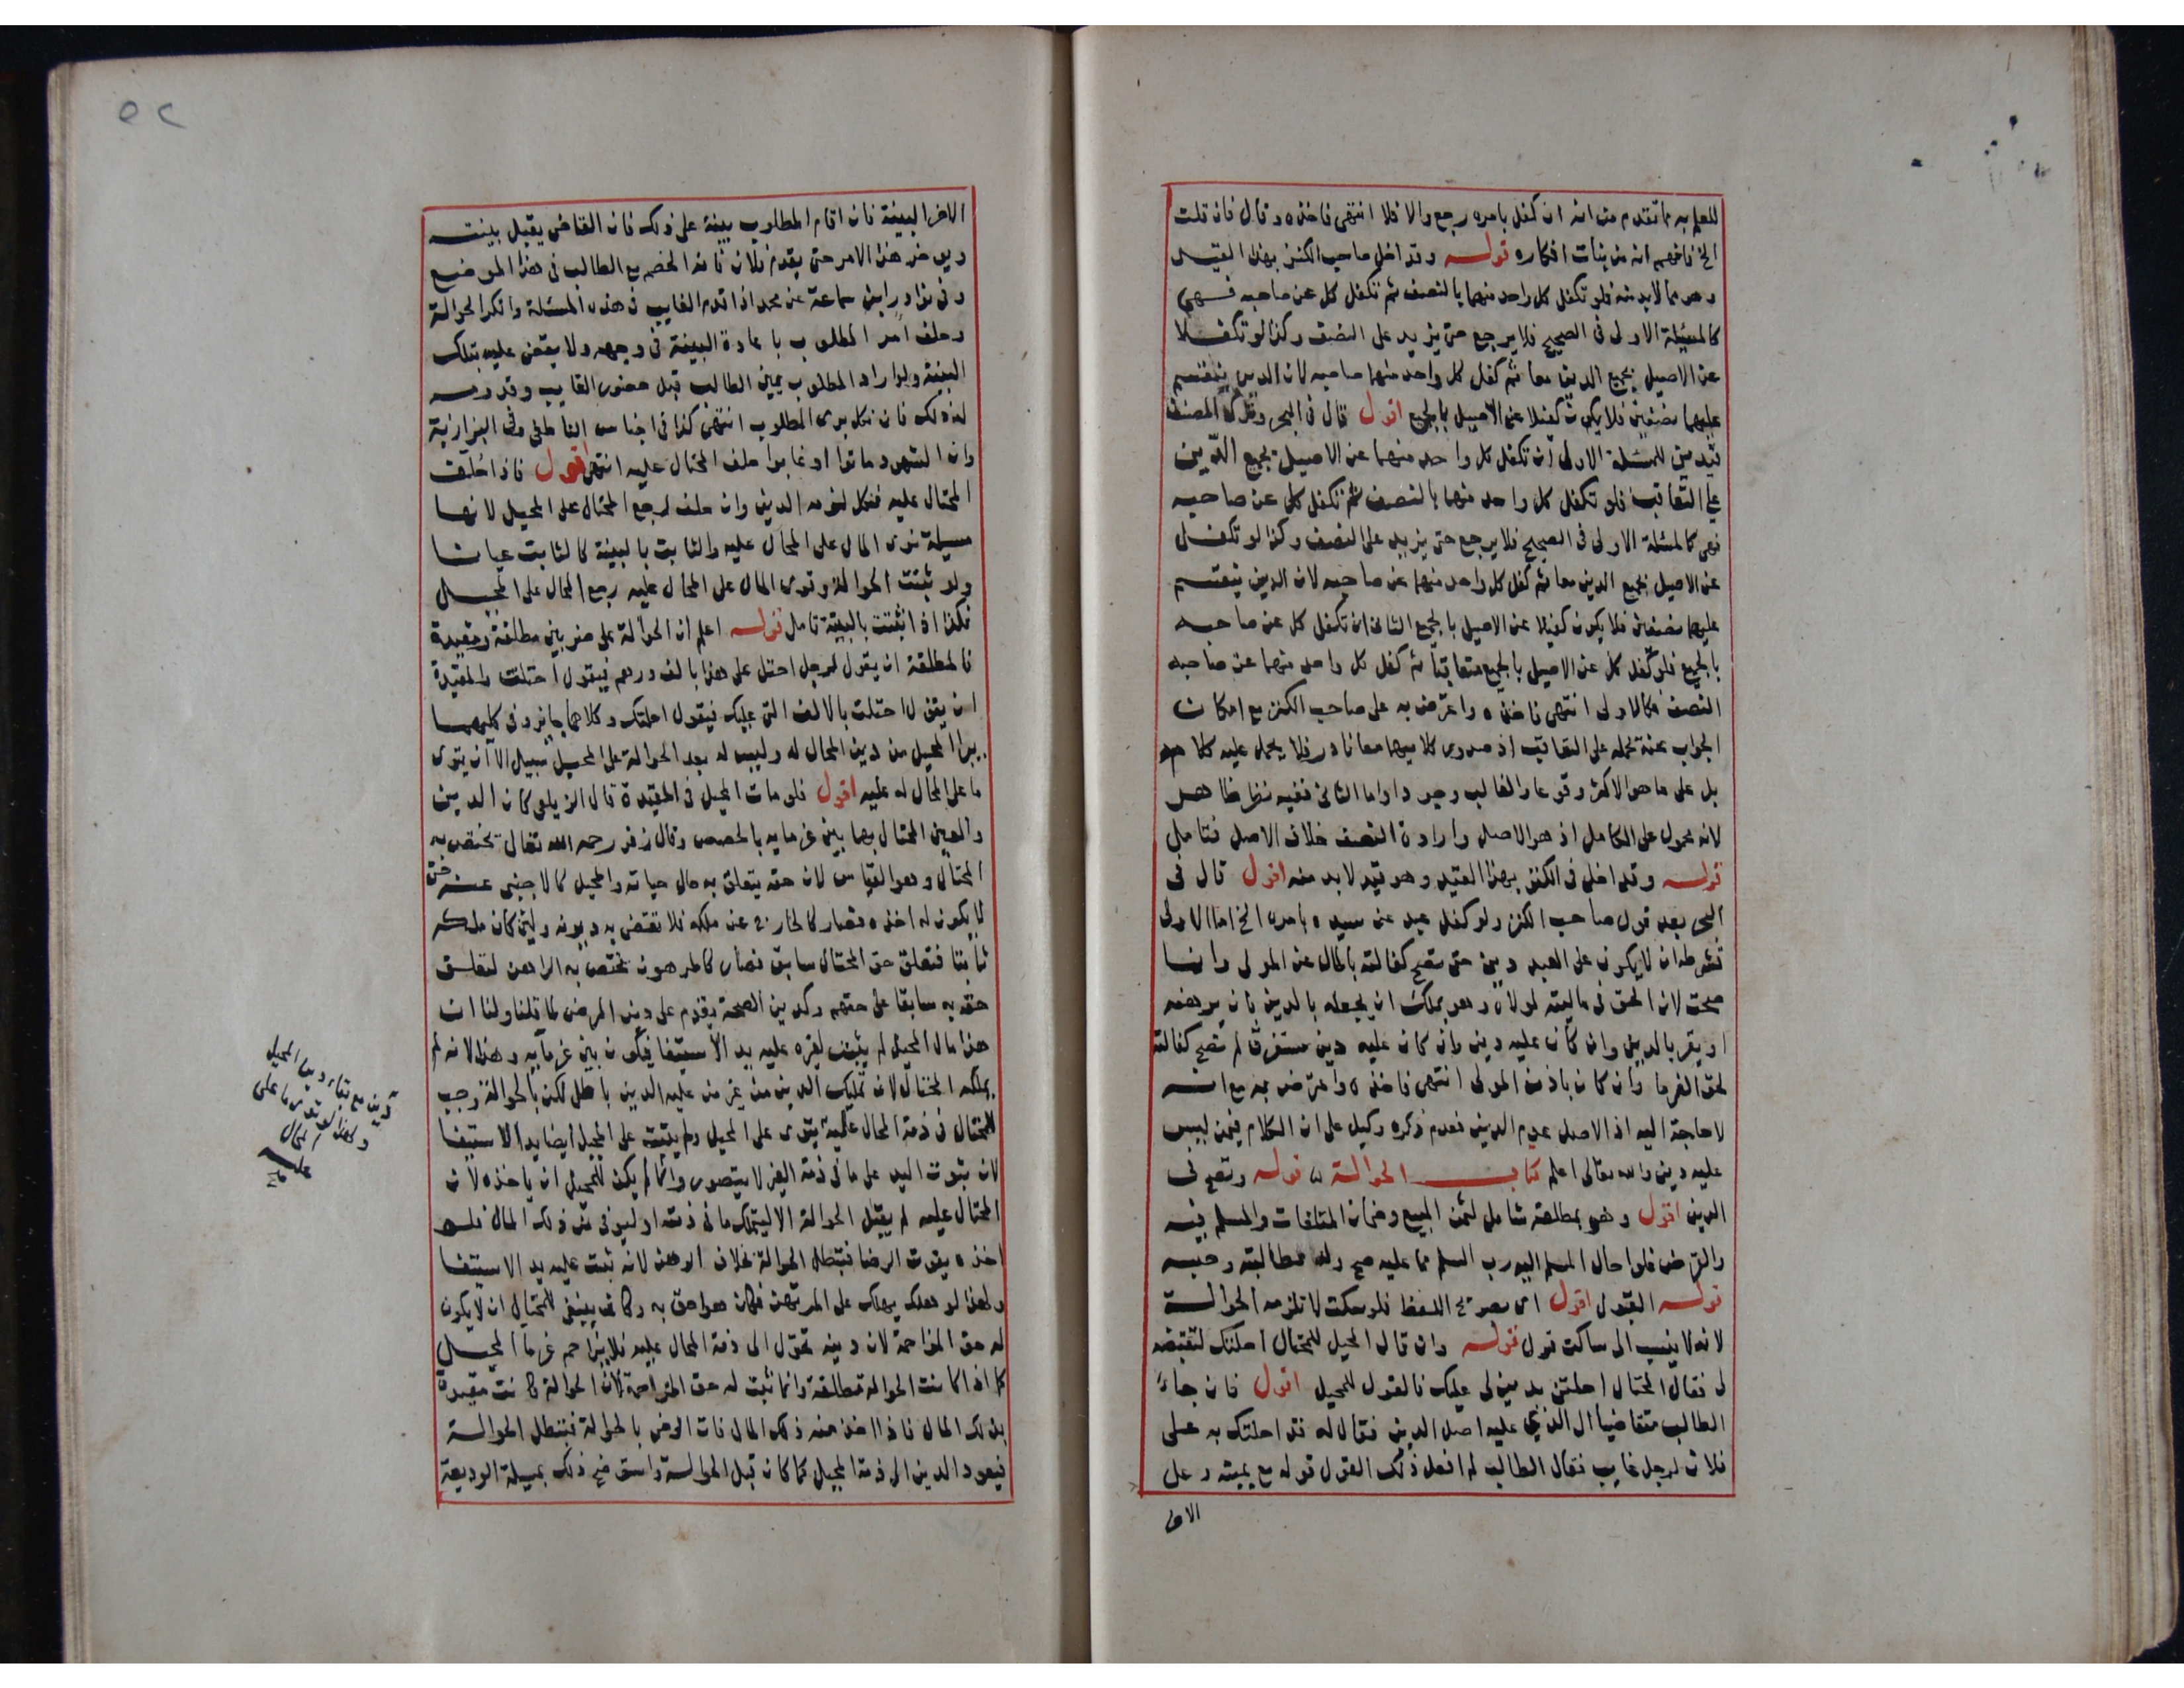 للعلم به مما تقدم من انه ان كفل بامره رجع والا فلا انتهى فاخذه وقال فان قلت
الخ فافهم انه من بنات افكاره قوله وقد اخل صاحب الكنز بهذا القيد
وهو مما لابد منه فلو تكفل كل واحد منهما بالنصف ثم تكفل كل عن صاحبه فهي
كالمسئلة الاولى في الصحيح فلا يرجع حتى يزيد على النصف وكذا لو تكفلا
عن الاصيل بجميع الدين معا ثم كفل كل واحد منهما صاحبه لان الدين ينقسم
عليهما نصفين فلا يكون كفيلا عن الاصيل بالجميع اقول قال في البحر وترك المصنف
قيدين للمسئلة الاولى ان تكفل كل واحد منهما عن الاصيل بجميع الدين
على التعاقب فلو تكفل كل واحد منهما بالنصف ثم تكفل كل عن صاحبه
فهي كالمسئلة الاولى في الصحيح فلا يرجع حتى يزيد على النصف وكذا لو تكفل
عن الاصيل بجميع الدين معا ثم كفل كل واحد منهما عن صاحبه لان الدين ينقسم
عليهما نصفين فلا يكون كفيلا عن الاصيل بالجميع الثاني ان تكفل كل عن صاحبه
بالجميع فلو كفل كل عن الاصيل بالجميع متعاقبا ثم كفل كل واحد منهما عن صاحبه
النصف فكالاولى انتهى فاخذه واعترض به على صاحب الكنز مع امكان
الجواب عنه بحمله على التعاقب اذ صدور كلاميهما معا نادر فلا يحمل عليه كلامهم
بل على ما هو الاكثر وقوعا والغالب وجودا واما الثاني ففيه نظر ظاهر
لانه محمول على الكامل اذ هو الاصل وارادة النصف خلاف الاصل فتامل
قوله وقد اخل في الكنز بهذا القيد وهو قيد لابد منه اقول قال في
البحر بعد قول صاحب الكنز ولو كفل عبد عن سيده بامره الخ اما الاولى
فشرطه ان لا يكون على العبد دين حتى تصح كفالته بالمال عن المولى وانما
صحت لان الحق في ماليته لمولاه وهو يملك ان يجعله بالدين بان يرهنه
او يقر بالدين وان كان عليه دين وان كان عليه دين مستغرق لم تصح كفالته
لحق الغرما وان كان باذن المولى انتهى فاخذه واعترض به مع انه
لا حاجة اليه اذ الاصل عدم الدين فعدم ذكره دليل على ان الكلام فيمن ليس
عليه دين والله تعالى اعلم كتاب الحوالة قوله وتصح في
الدين اقول وهو بمطلقه شامل لثمن المبيع وضمان المتلفات والمسلم فيه
والقرض فلو احال المسلم اليه رب السلم مما عليه صح وله مطالبته وحبسه
قوله القبول اقول اي بصريح اللفظ فلو سكت لا تلزمه الحوالة
لانه لا ينسب الى ساكت قول قوله وان قال المحيل للمحتال احلتك لتقبضه
لي فقال المحتال احلتني بدين لي عليك فالقول للمحيل اقول فان جاء
الطالب متقاضيا الى الذي عليه اصل الدين فقال له قد احلتك به على
فلان لرجل غايب فقال الطالب لم افعل ذلك القول قوله مع يمينه وعلى
الاخر
الاخر البينة فان اقام المطلوب بينة على ذلك فان القاضي يقبل بينته
ويوخر هذا الامر حتى يقدم فلان فانه الخصم مع الطالب في هذا الموضع
وفي نوادر ابن سماعة عن محمد اذا قدم الغايب في هذه المسئلة وانكر الحوالة
وحلف امر المطلوب باعادة البينة في وجهه ولا يقضى عليه بتلك
البينة ولو اراد المطلوب يمين الطالب قبل حضور الغايب
له ذلك فان نكل برئ المطلوب انتهى كذا في اجناس الناطفي وفي البزازية
وان الشهود ماتوا او غابوا حلف المحتال عليه انتهى اقول فاذا حلف
المحتال عليه فنكل لزمه الدين وان حلف لم يرجع المحتال على المحيل لانها
مسيلة توى المال على المحال عليه والثابت بالبينة كالثابت عيانا
ولو ثبتت الحوالة وتوى المال على المحال عليه رجع المحال على المحيل
فكذا اذا ثبتت بالبينة تامل قوله اعلم ان الحوالة على ضربين مطلقة ومقيدة
فالمطلقة ان يقول لرجل احتل على هذا بالف درهم فيقول احتلت والمقيدة
ان يقول احتلت بالالف التي عليك فيقول احلتك وكلاهما جائز وفي كليهما
يبرأ المحيل من دين المحال له وليس له بعد الحوالة على المحيل سبيل الا ان يتوى
ما على المحال له عليه اقول فلو مات المحيل في المقيدة قال الزيلعي كان الدين
والعين المحتال بهما بين غرمايه بالحصص وقال زفر رحمه الله تعالى يختص به
المحتال وهو القياس لان حقه يتعلق به حال حياته والمحيل كالاجنبي عنه حتى
لا يكون له اخذه فصار كالخارج عن ملكه فلا تقتضى به ديونه ولين كان ملكه
ثابتا فتعلق حق المحتال سابق فصار كالمرهون يختص به الراهن لتعلق
حقه به سابقا على حقهم وكدين الصحة يقدم على دين المرض لما قلنا ولنا ان
هذا مال المحيل لم يثبت لغيره عليه يد الاستيفا فيكون بين غرمايه وهذا لانه لم
يملكه المحتال لان تمليك الدين من غير من عليه الدين باطل لكن بالحوالة وجب
للمحتال في ذمة المحال عليه يتوى على المحيل ولم يثبت على المحيل ايضا يد الاستيفا
لان ثبوت اليد على ما في ذمة الغير لا يتصور وانما لم يكن للمحيل ان ياخذه لان
المحتال عليه لم يقبل الحوالة الا ليتملك ما في ذمته او ليوفي من ذلك المال فلو
اخذه يفوت الرضا فتبطل الحوالة بخلاف الرهن لانه ثبت عليه يد الاستيفا
ولهذا لو هلك يهلك على المرتهن فكان هو احق به وكان ينبغي للمحتال ان لا يكون
له حق المزاحمة لان دينه تحول الى ذمة المحال عليه فلا يزاحم غرما المحيل
كما اذا كانت الحوالة مطلقة وانما ثبت له حق المزاحمة لان الحوالة كانت مقيدة
بذلك المال فاذا اخذ منه ذلك المال فات الرضى بالحوالة فتبطل الحوالة
فيعود الدين الى ذمة المحيل كما كان قبل الحوالة واستوضح ذلك بمسيلة الوديعة
دين مع بقاء دين المحيل
ولهذا لو توى ما على
المحال
عليه